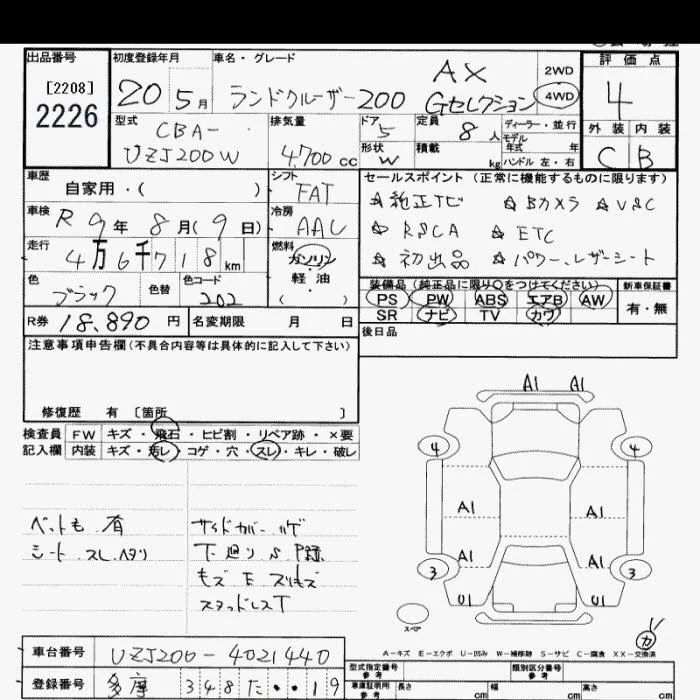 出品番号
初度登録年月
車名・グレード
評価点
[2208]
2226
20 5月
ランドクルーザー200
AX
Gセレクション
2WD
4WD
4
型式
CBA-
UZJ200W
排気量
4,700 cc
ドア
5
定員
8 人
ディーラー・並行
モデル
年式 年
形状
W
積載
kg
ハンドル 左・右
外装 内装
C B
車歴
自家用・( )
シフト
FAT
セールスポイント (正常に機能するものに限ります)
☆純正TV ☆Bカメラ ☆VSC
☆RSCA ☆ETC
☆初出品 ☆パワー、レザーシート
車検
R 9年 8月(9日)
冷房
AAC
走行
4万6千718km
燃料
ガソリン
軽・油
( )
色
ブラック
色替
色コード
202
装備品(純正品に限り○をつけてください)
新車保証書
PS PW ABS エアB AW
SR ナビ TV カワ
有・無
R券 18,890 円
名変期限 月 日
後日品
注意事項申告欄(不具合内容等は具体的に記入して下さい)
修復歴 有 [箇所 ]
検査員
記入欄
FW キズ・飛石・ヒビ割・リペア跡・×要
内装 キズ・汚レ・コゲ・穴・スレ・キレ・破レ
ペットも 有
シート スレ ヘタリ
サイドカバー ハゲ
下廻り S
スタッドレスT
A1 A1
4 4
A1 A1
A1 A1
3 3
U1 U1
スペア
カ
A-キズ E-エクボ U-凹み W-補修跡 S-サビ C-腐食 XX-交換済
車台番号
UZJ200-4021440
登録番号
多摩 348 た ・・19
型式指定番号
参考
類別区分番号
参考
車庫証明用
参考
長さ cm
幅 cm
高さ cm